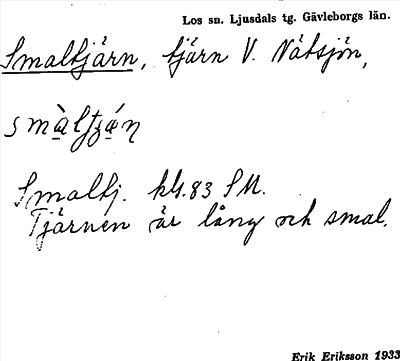 Los sn. Ljusdals tg. Gävleborgs län.
Smaltjärn, tjärn V. Nätsjön,
Smaltj. kbl. 83 SM.
Tjärnen är lång och smal.
Erik Eriksson 1933